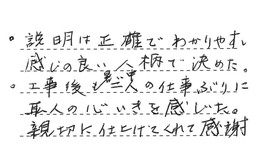 。説明は正確でわかりやす。
感じの良い人柄で決めた。
。工事後も二人の仕事ぶりに
職人の心いきを感じた。
親切に仕上げてくれて感謝